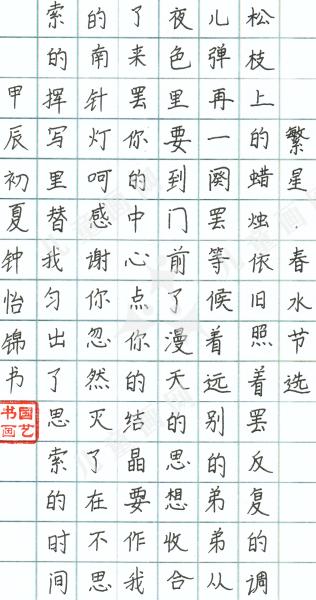 繁星·春水节选
松枝上的蜡烛依旧照着罢反复的调
儿弹再一阕罢等候着远别的弟弟从
夜色里要到门前了漫天的思想收合
了来罢你的中心点你的结晶要作我
的南针灯呵感谢你忽然灭了在不思
索的挥写里替我匀出了思索的时间
甲辰初夏钟怡锦书
国艺书画